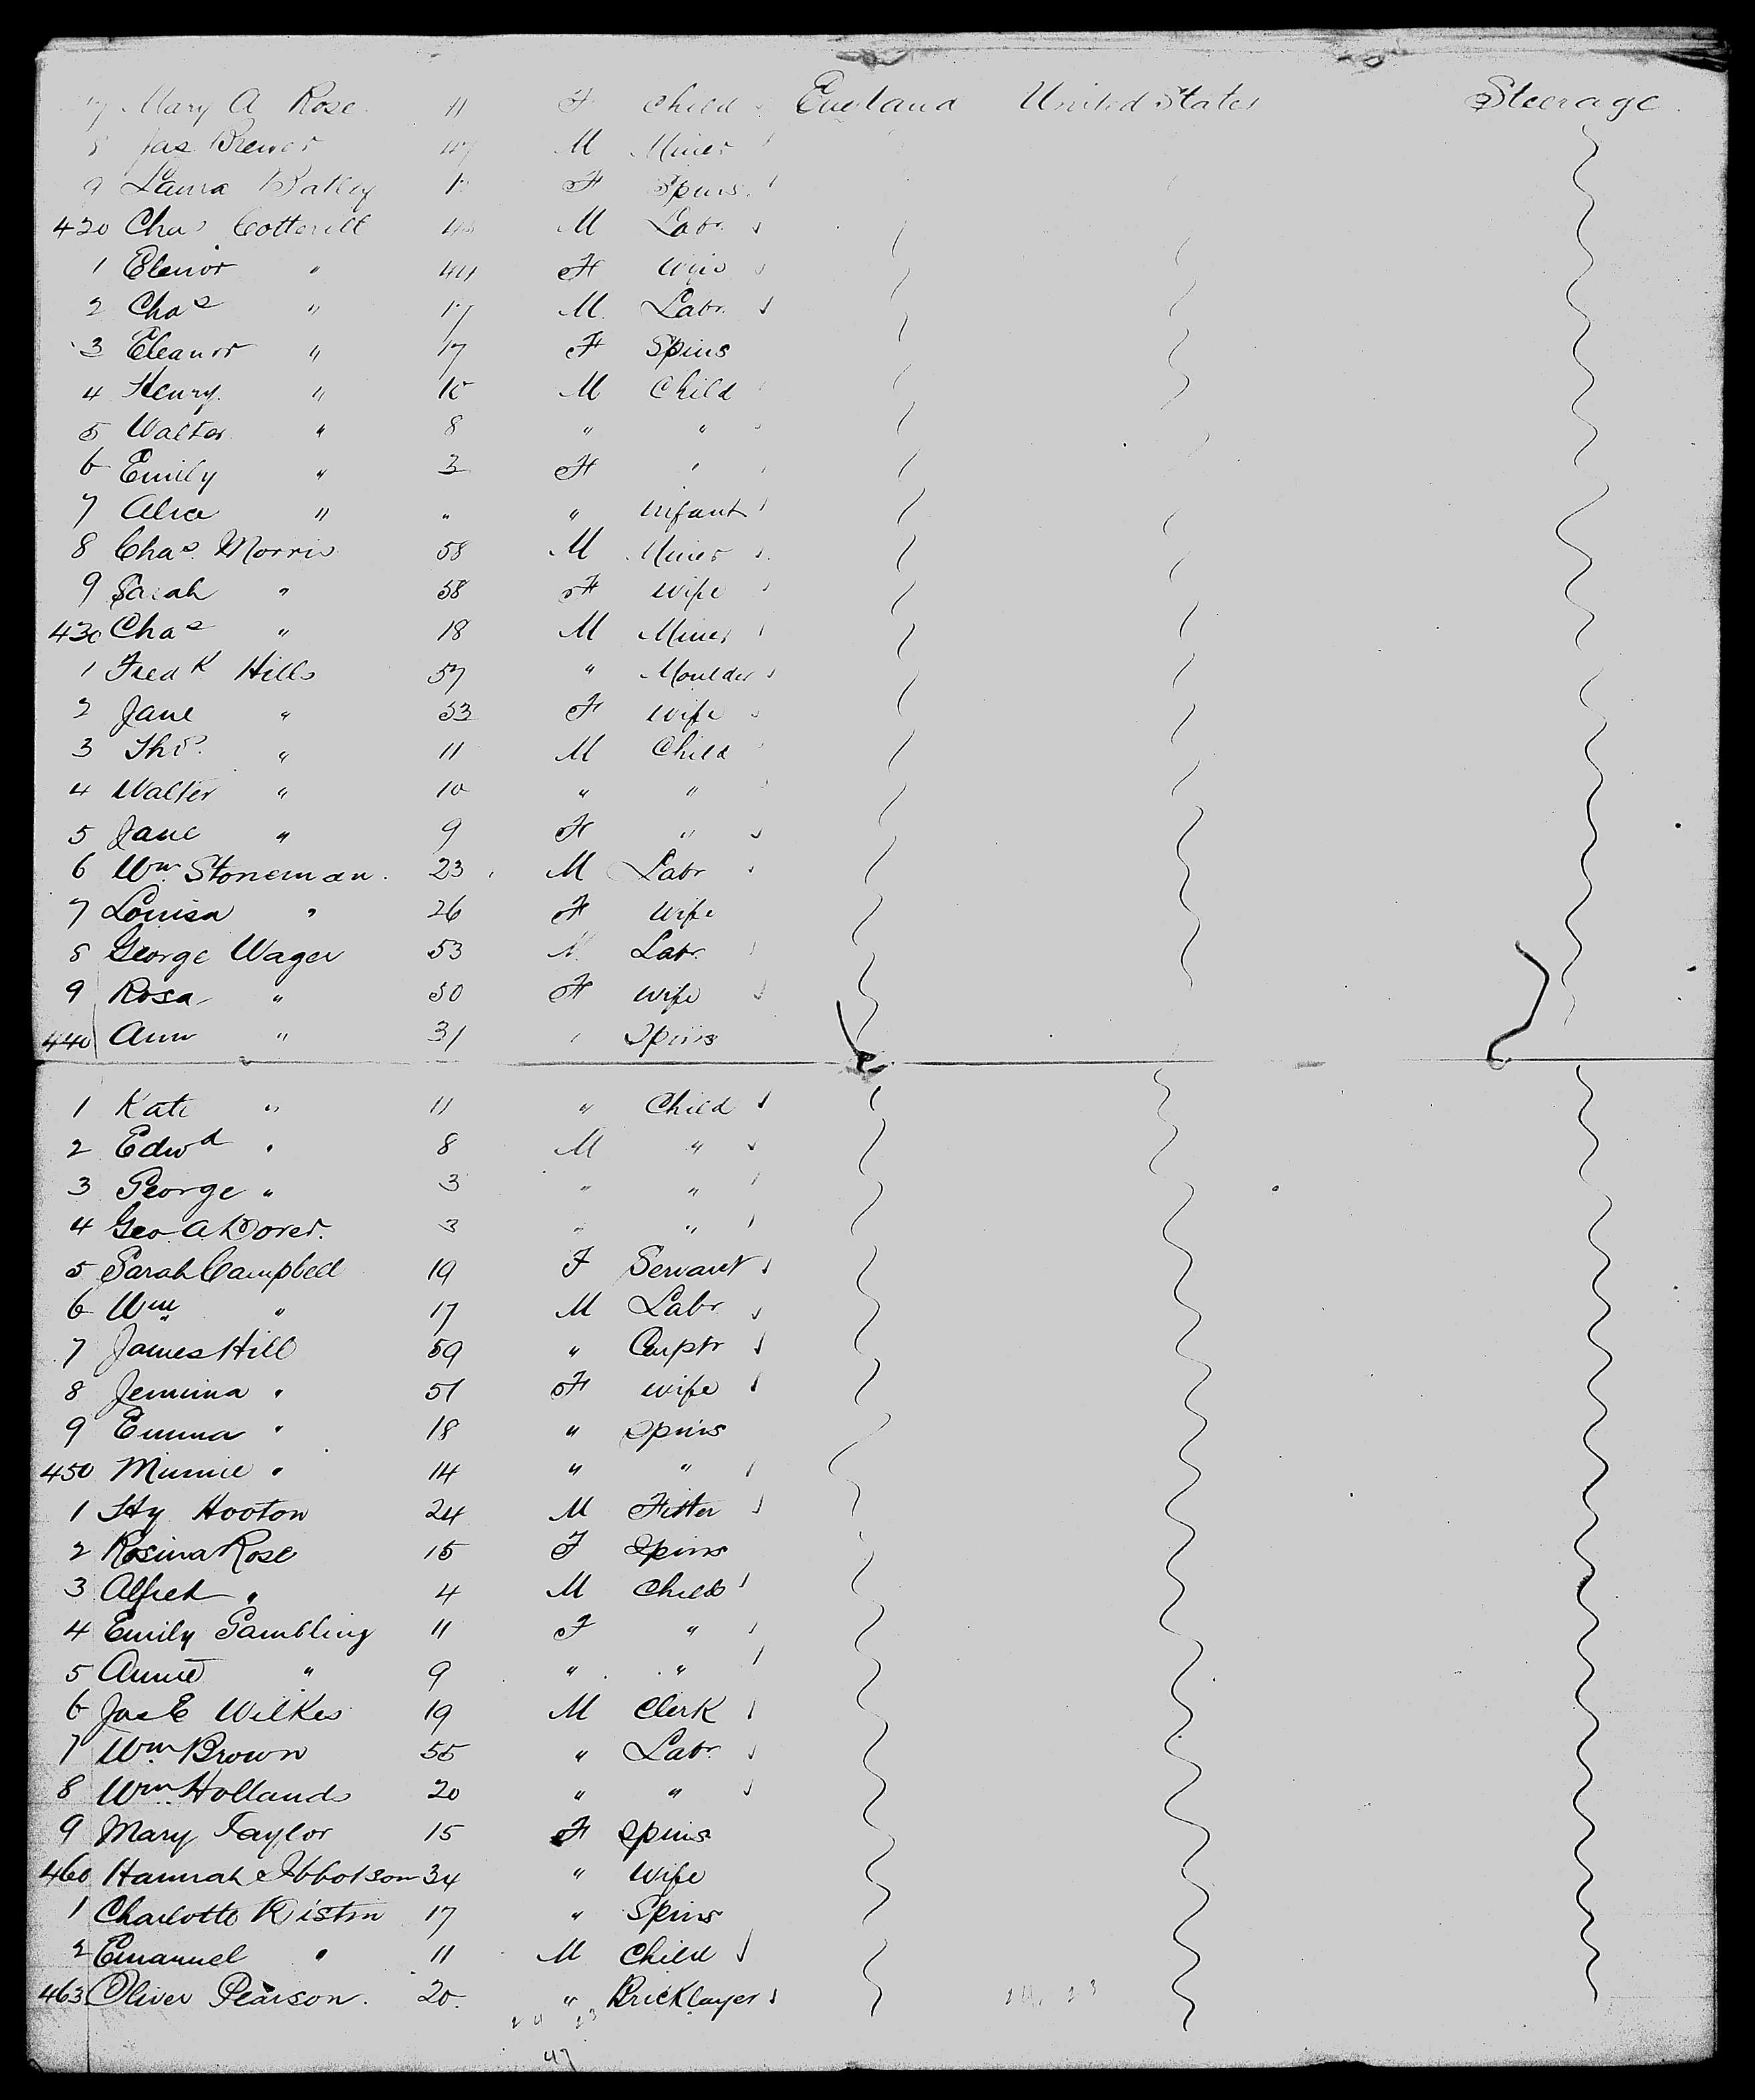 7 Mary A Rose 11 F Child England United States Steerage
8 Jas Brewer 47 M Miner
9 Laura F Spins.
420 Chas Cotterill M Labr
1 Elenor " 44 F Wife
2 Chas " 17 M Labr.
3 Eleanor " 17 F Spins
4 Henry " 10 M Child
5 Walter " 8 " "
6 Emily " 3 F "
7 Alice " " " Infant
8 Chas. Morris 58 M Miner
9 Sarah " 58 F Wife
430 Chas " 18 M Miner
1 Fredk Hills 57 " Moulder
2 Jane " 53 F Wife
3 Thos. " 11 M Child
4 Walter " 10 " "
5 Jane " 9 F "
6 Wm. Stoneman. 23 M Labr
7 Louisa " 26 F Wife
8 George Wager 53 M. Labr.
9 Rosa " 50 F Wife
440 Ann " 31 " Spins
1 Kate " 11 " Child
2 Edwd " 8 M "
3 George " 3 " "
4 Geo A Dover. 3 " "
5 Sarah Campbell 19 F Servant
6 Wm " 17 M Labr.
7 James Hill 59 " Carptr
8 Jemima " 51 F Wife
9 Emma " 18 " Spins
450 Minnie " 14 " "
1 Hy Hooton 24 M Fitter
2 Rosina Rose 15 F Spins
3 Alfred " 4 M Child
4 Emily Gambling 11 F "
5 Annie " 9 " "
6 Jas E Wilkes 19 M Clerk
7 Wm. Brown 55 " Labr.
8 Wm. Hollands 20 " "
9 Mary Taylor 15 F Spins
460 Hannah Ibbotson 34 " Wife
1 Charlotte Kistin 17 " Spins
2 Emanuel " 11 M Child
463 Oliver Pearson. 20. " Bricklayer
24 23 24 23
47